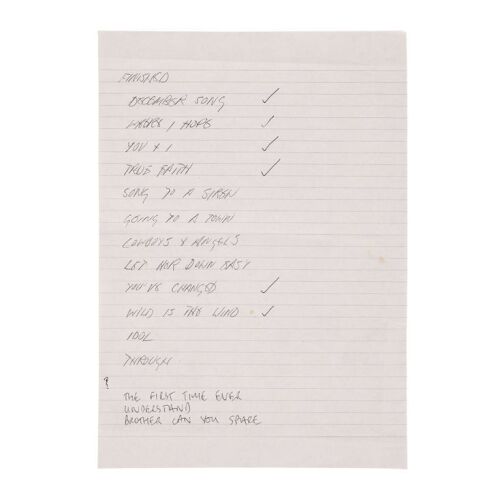 FINISHED
DECEMBER SONG ✓
WHERE I HOPE ✓
YOU & I ✓
TRUE FAITH ✓
SONG TO A SIREN
GOING TO A TOWN
COWBOYS & ANGELS
LET HER DOWN EASY
YOU'VE CHANGED ✓
WILD IS THE WIND ✓
IDOL
THROUGH
?
THE FIRST TIME EVER
UNDERSTAND
BROTHER CAN YOU SPARE